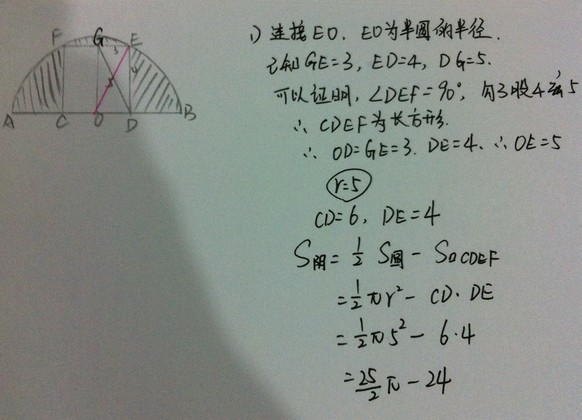 F G E
3
4
5
A C O D B
1) 连接EO. EO为半圆的半径.
已知GE=3, ED=4, DG=5.
可以证明, ∠DEF=90°, 勾3股4弦5
∴ CDEF为长方形.
∴ OD=GE=3. DE=4. ∴OE=5
r=5
CD=6, DE=4
S阴=1/2 S圆 - S□CDEF
=1/2 πr² - CD·DE
=1/2 π5² - 6·4
=25/2 π - 24